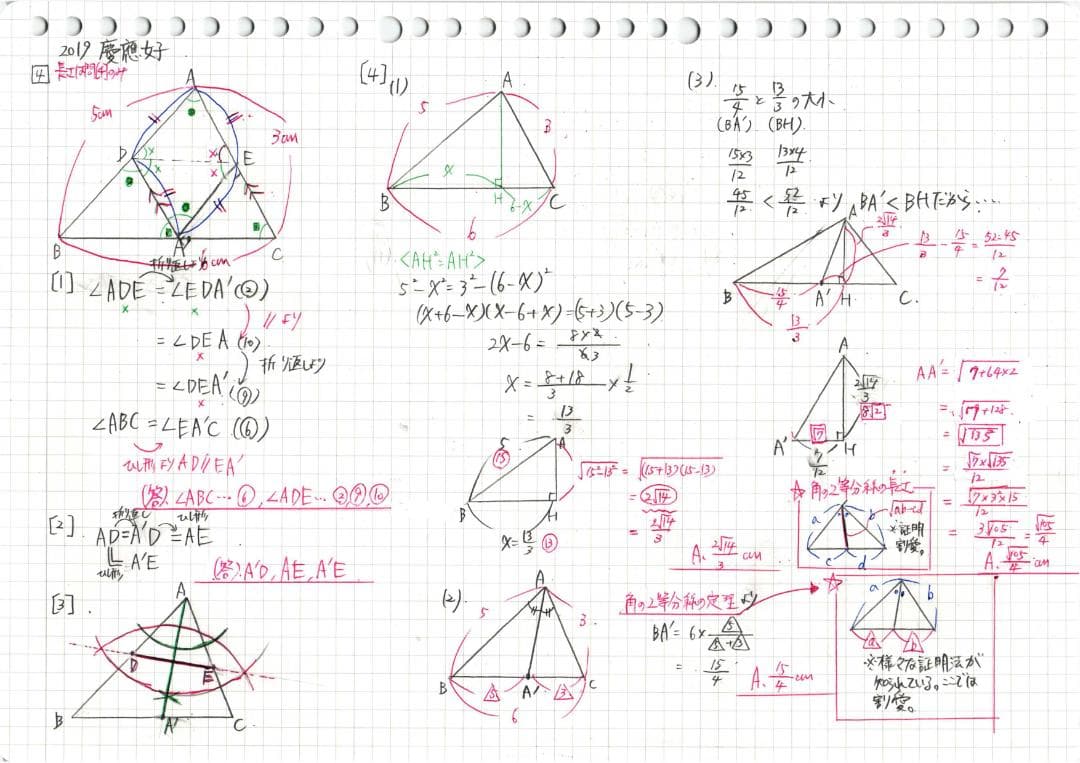 2019 慶應女子
4
長さは問[4]のみ
A
5cm
3cm
D
E
B
A'
C
6cm
[1]
∠ADE = ∠EDA' (②)
//より
= ∠DEA (⑩)
折り返しより
= ∠DEA' (⑨)
∠ABC = ∠EA'C (⑥)
ひし形よりAD//EA'
(答) ∠ABC…⑥, ∠ADE…②⑨⑩
[2]
折り返し
ひし形
AD=A'D=AE
ひし形
A'E
(答) A'D, AE, A'E
[3]
A
D
E
B
A'
C
[4](1)
A
5
3
x
B
H
6-x
C
6
<AH²=AH²>
5²-x²=3²-(6-x)²
(x+6-x)(x-6+x)=(5+3)(5-3)
2x-6= 8×2/63
x= 8+18/3 × 1/2
= 13/3
5
⑮
A
B
H
x=13/3 ⑬
√15²-13² = √(15+13)(15-13)
= 2√14
2√14/3
A. 2√14/3 cm
(2)
A
5
3
B
5
A'
3
C
6
角の2等分線の定理より
BA'=6× 5/5+3
= 15/4
A. 15/4 cm
(3)
15/4 と 13/3 の大小
(BA') (BH)
15×3/12 13×4/12
45/12 < 52/12 より BA'<BHだから…
A
2√14/3
13/3 - 15/4 = 52-45/12
= 7/12
B
15/4
A'
H
C.
13/3
A
2√14/3
8√2
√7
A'
7/12
H
AA'= √7+64×2
= √7+128
= √135
= √7×√135/12
= √7×3²×15/12
= 3√105/12 = √105/4
A. √105/4 cm
☆角の2等分線の長さ
a
b
√ab-cd
c
d
※証明
割愛。
☆
a
b
a
b
※様々な証明法が
知られている。ここでは
割愛。